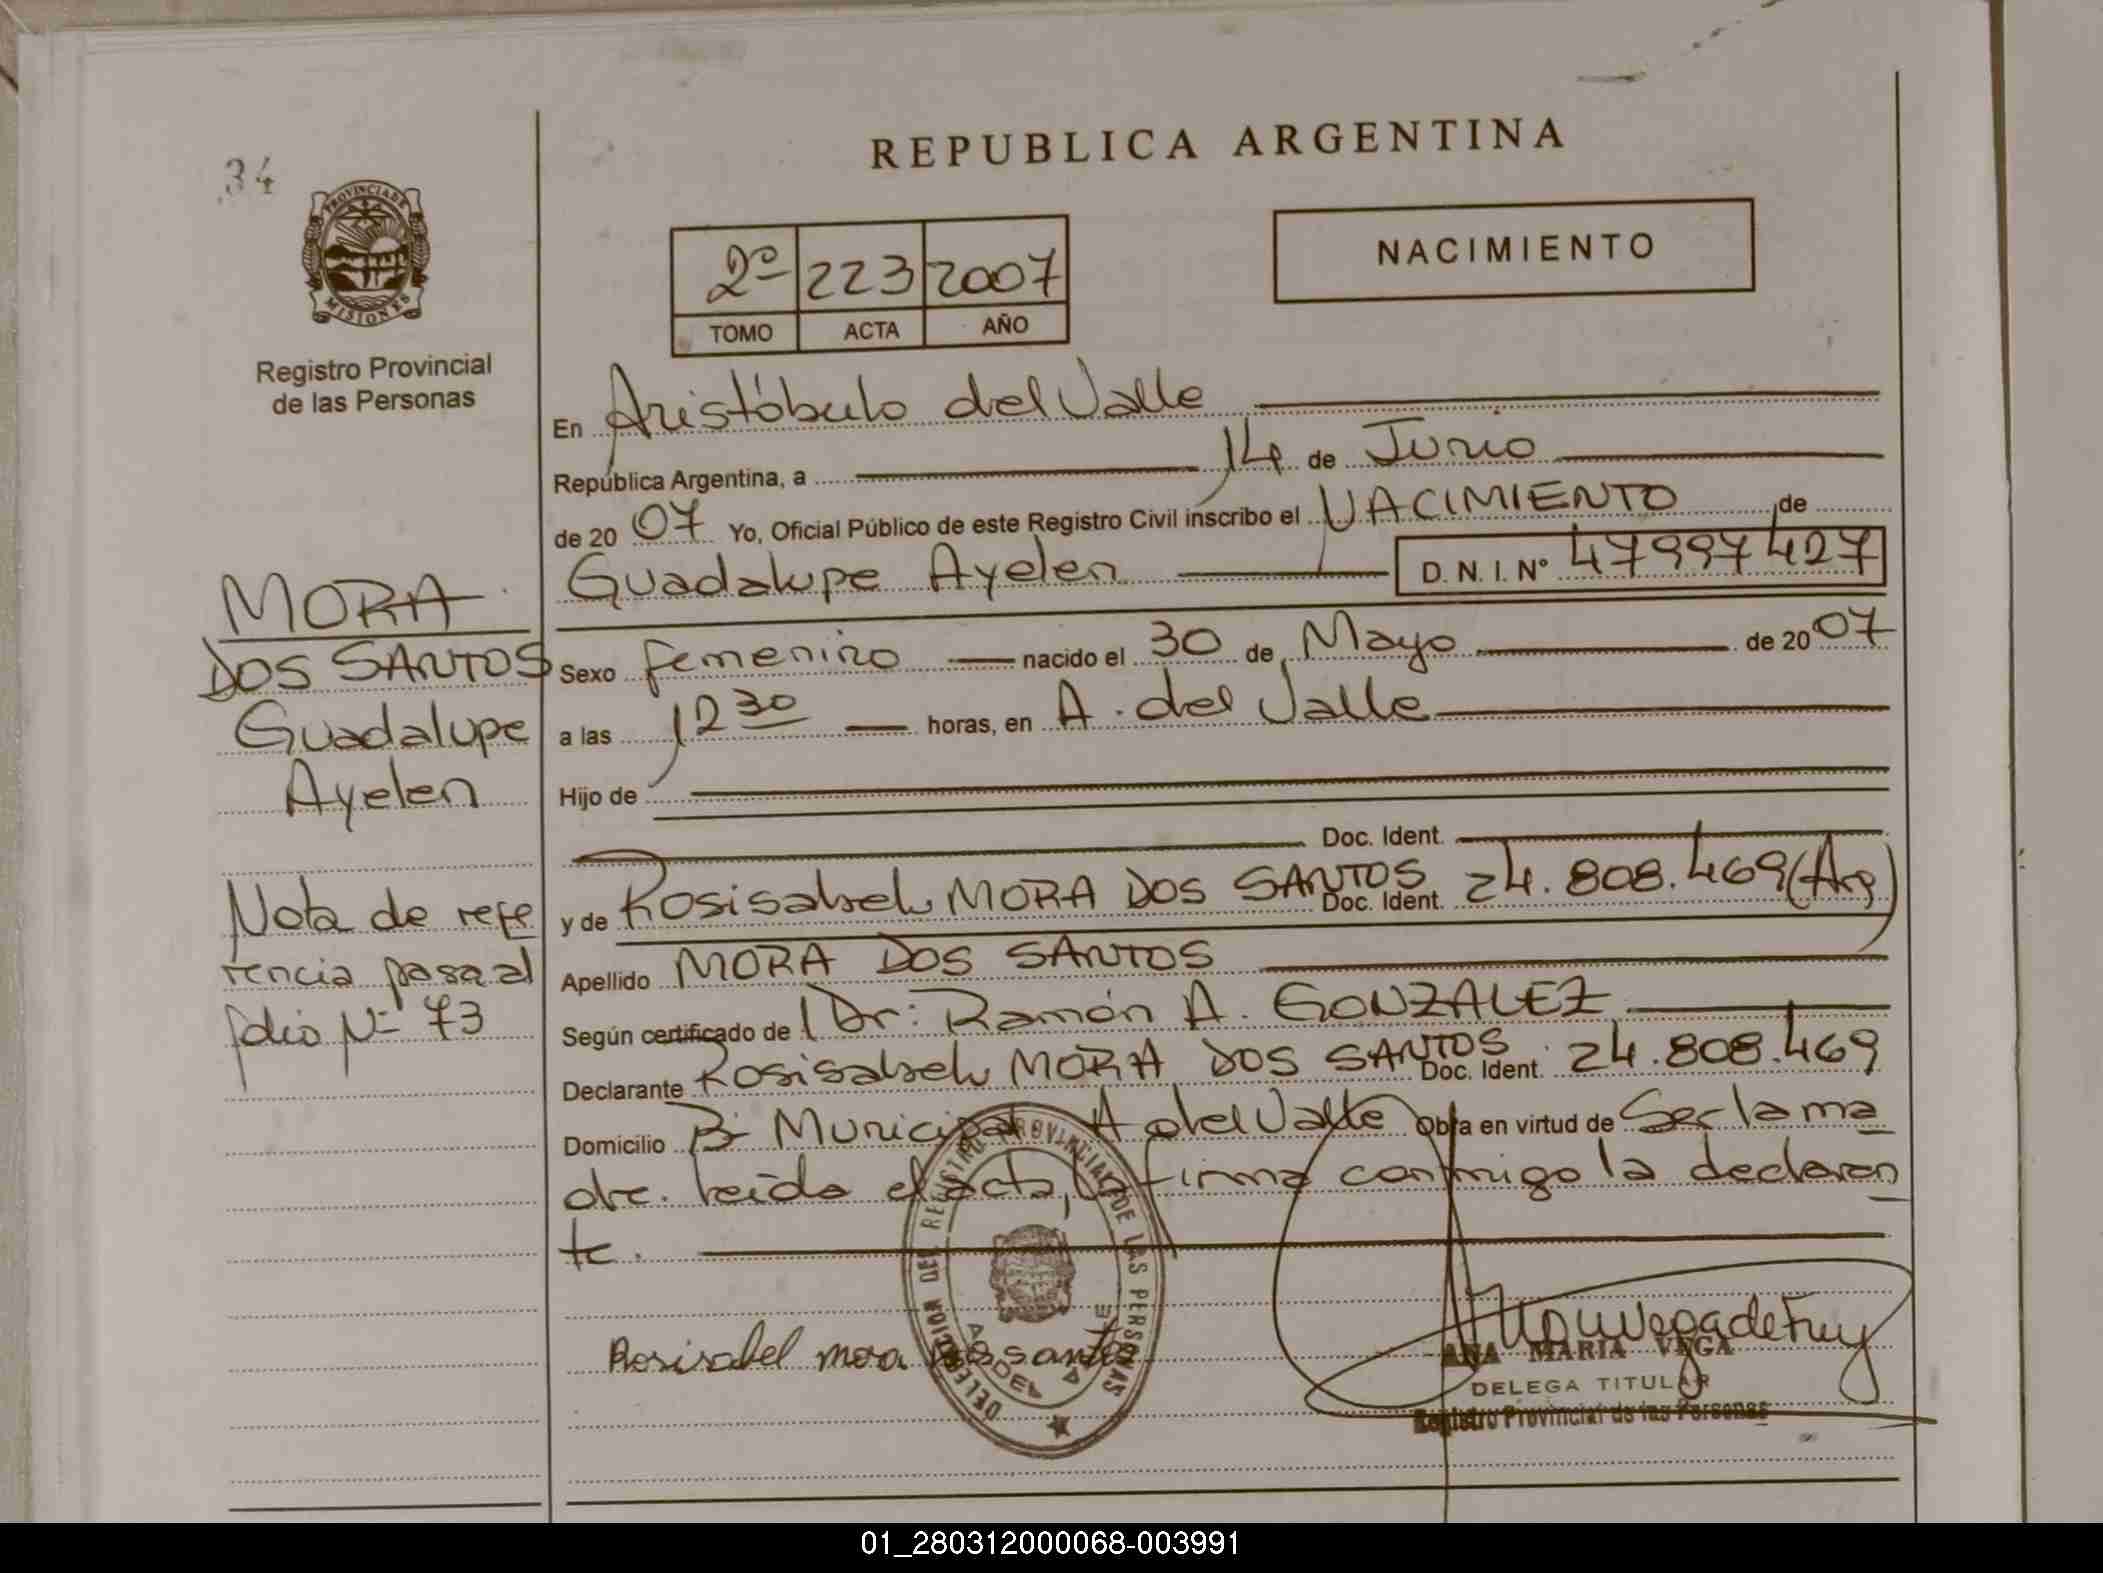 34
PROVINCIA DE
MISIONES
Registro Provincial
de las Personas
REPUBLICA ARGENTINA
2º 223 2007
TOMO ACTA AÑO
NACIMIENTO
En Aristóbulo del Valle
República Argentina, a 14 de Junio
de 2007 Yo, Oficial Público de este Registro Civil inscribo el NACIMIENTO de
Guadalupe Ayelen D.N.I. Nº 47997427
Sexo femenino nacido el 30 de Mayo de 2007
a las 12 30 horas, en A. del Valle
Hijo de
Doc. Ident.
y de Rosisabel MORA DOS SANTOS Doc. Ident. 24.808.469 (Arg)
Apellido MORA DOS SANTOS
Según certificado de Dr: Ramón A. GONZALEZ
Declarante Rosisabel MORA DOS SANTOS Doc. Ident. 24.808.469
Domicilio Bº Municipal A del Valle Obra en virtud de Ser la ma
dre. Leida el acta, la firma conmigo la declaran
te.
MORA
DOS SANTOS
Guadalupe
Ayelen
Nota de refe
rencia pasa al
folio Nº 73
Rosisabel mora dos santos
DELEGACION DEL REGISTRO PROVINCIAL DE LAS PERSONAS
Ana Vega de Fuy
ANA MARIA VEGA
DELEGA TITULAR
Registro Provincial de las Personas
01_280312000068-003991